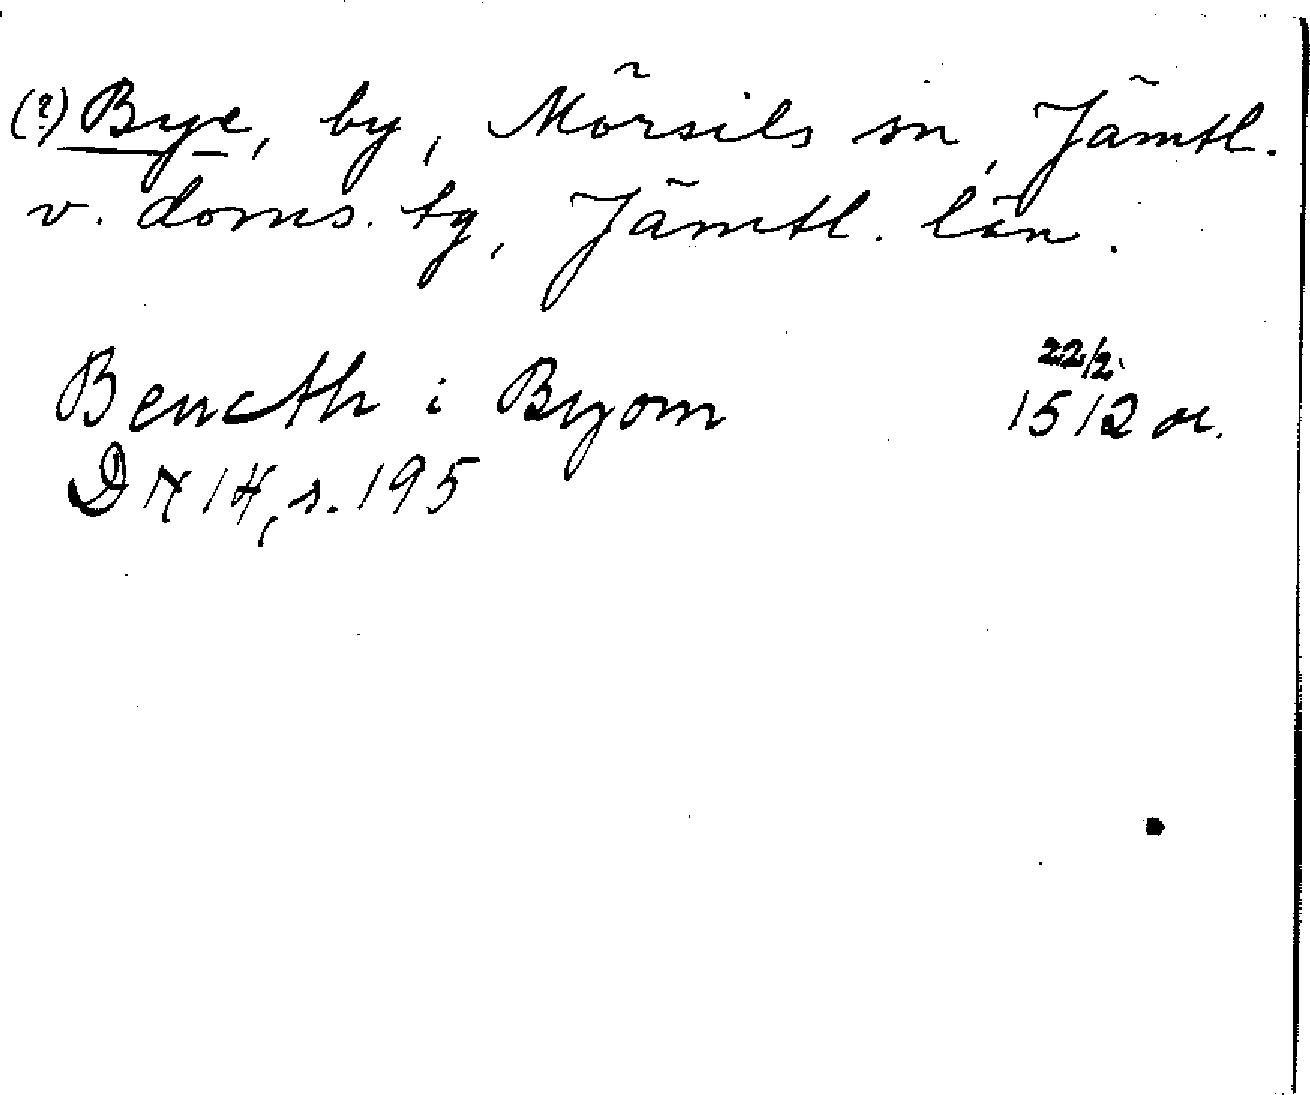 (?) Bye, by, Mörsils sn, Jämtl.
v. doms. tg, Jämtl. län.
22/2
Bencth i Byom 1512 or.
DN 14, s. 195